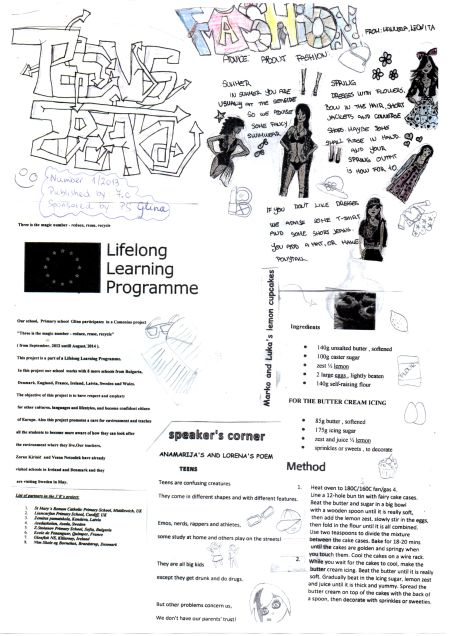 TEENS
SPEAK
Number 1/2013
Published by 7.c
Sponsored by PS Glina
FASHION
FROM: MANUELA, LEONITA
ADVICE ABOUT FASHION
SUMMER
IN SUMMER YOU ARE
USUALLY AT THE SEASIDE
SO WE ADVISE
SOME FANCY
SWIMWEAR
SPRING
DRESSES WITH FLOWERS,
BOW IN THE HAIR, SHORT
JACKETS AND CONVERSE
SHOES. MAYBE SOME
SMALL PURSE IN HAND
AND YOUR
SPRING OUTFIT
IS NOW FOR 10
IF YOU DONT LIKE DRESSES
WE ADVISE SOME T-SHIRT
AND SOME SHORT JEANS.
YOU ADD A HAT, OR MAKE
PONYTAIL
Three is the magic number - reduce, reuse, recycle
Lifelong
Learning
Programme
Our school, Primary school Glina participates in a Comenius project
"Three is the magic number - reduce, reuse, recycle"
( from September, 2012 untill August, 2014 ).
This project is a part of a Lifelong Learning Programme.
In this project our school works with 8 more schools from Bulgaria,
Denmark, England, France, Ireland, Latvia, Sweden and Wales.
The objective of this project is to have respect and empathy
for other cultures, languages and lifestyles, and become confident citizens
of Europe. Also this project promotes a care for environment and teaches
all the students to become more aware of how they can look after
the environment where they live. Our teachers,
Zoran Kirinić and Vesna Netoušek have already
visited schools in Ireland and Denmark and they
are visiting Sweden in May.
List of partners in the 3 R's project:
1. St Mary's Roman Catholic Primary School, Middlewich, UK
2. Lansdowne Primary School, Cardiff, UK
3. Zemites pamatskola, Kandava, Latvia
Marko and Luka's lemon cupcakes
Ingredients
• 140g unsalted butter , softened
• 100g caster sugar
• zest ½ lemon
• 2 large eggs , lightly beaten
• 140g self-raising flour
FLOUR
FOR THE BUTTER CREAM ICING
• 85g butter , softened
• 175g icing sugar
• zest and juice ½ lemon
• sprinkles or sweets , to decorate
speaker's corner
ANAMARIJA'S AND LORENA'S POEM
TEENS
Teens are confusing creatures
They come in different shapes and with different features.
Emos, nerds, rappers and athletes,
some study at home and others play on the streets!
They are all big kids
except they get drunk and do drugs.
But other problems concern us,
We don't have our parents' trust!
Method
1. Heat oven to 180C/160C fan/gas 4.
Line a 12-hole bun tin with fairy cake cases.
Beat the butter and sugar in a big bowl
with a wooden spoon until it is really soft,
then add the lemon zest, slowly stir in the eggs,
then fold in the flour until it is all combined.
Use two teaspoons to divide the mixture
between the cake cases. Bake for 18-20 mins
until the cakes are golden and springy when
you touch them. Cool the cakes on a wire rack.
2. While you wait for the cakes to cool, make the
butter cream icing. Beat the butter until it is really
soft. Gradually beat in the icing sugar, lemon zest
and juice until it is thick and yummy. Spread the
butter cream on top of the cakes with the back of
a spoon, then decorate with sprinkles or sweeties.